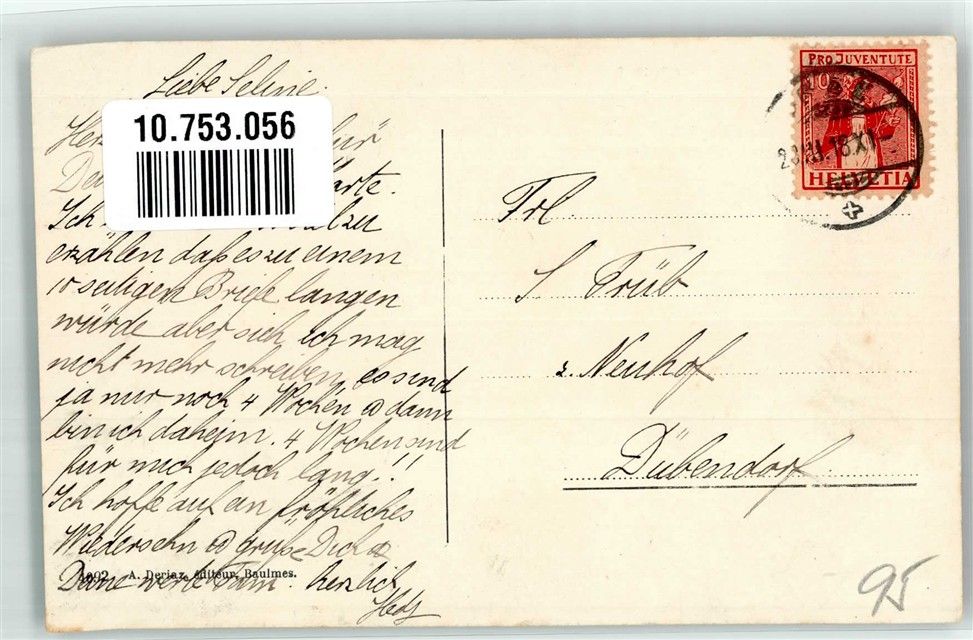 Liebe Seline.
10.753.056
Ich
erzählen daß es zu einem
10 seitigen Briefe langen
würde aber sieh, ich mag
nicht mehr schreiben, es sind
ja nur noch 4 Wochen & dann
bin ich daheim. 4 Wochen sind
für mich jedoch lang!!
Ich hoffe auf an fröhliches
Wiedersehn & grüße Dich &
Deine werte Fam. herzlich
A. Deriaz, éditeur, Baulmes.
Hedy
PRO JUVENTUTE
10
HELVETIA
Frl.
S Trüb
z. Neuhof
Dübendorf
95